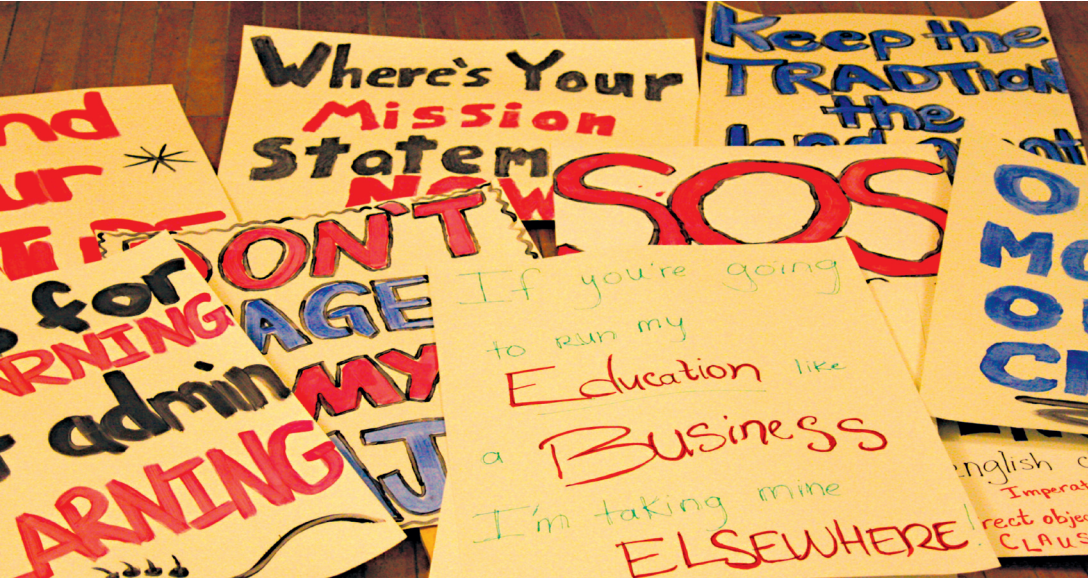 nd
ur
Where's Your
Mission
Statem
NOW
Keep the
TRADTion
the
SOS
DON'T
AGE
MY
J
for
ARNING
admin
ARNING
If you're going
to run my
Education like
a Business
I'm taking mine
ELSEWHERE!
O
MO
O
C
english c
Imperat
rect objec
CLAUS